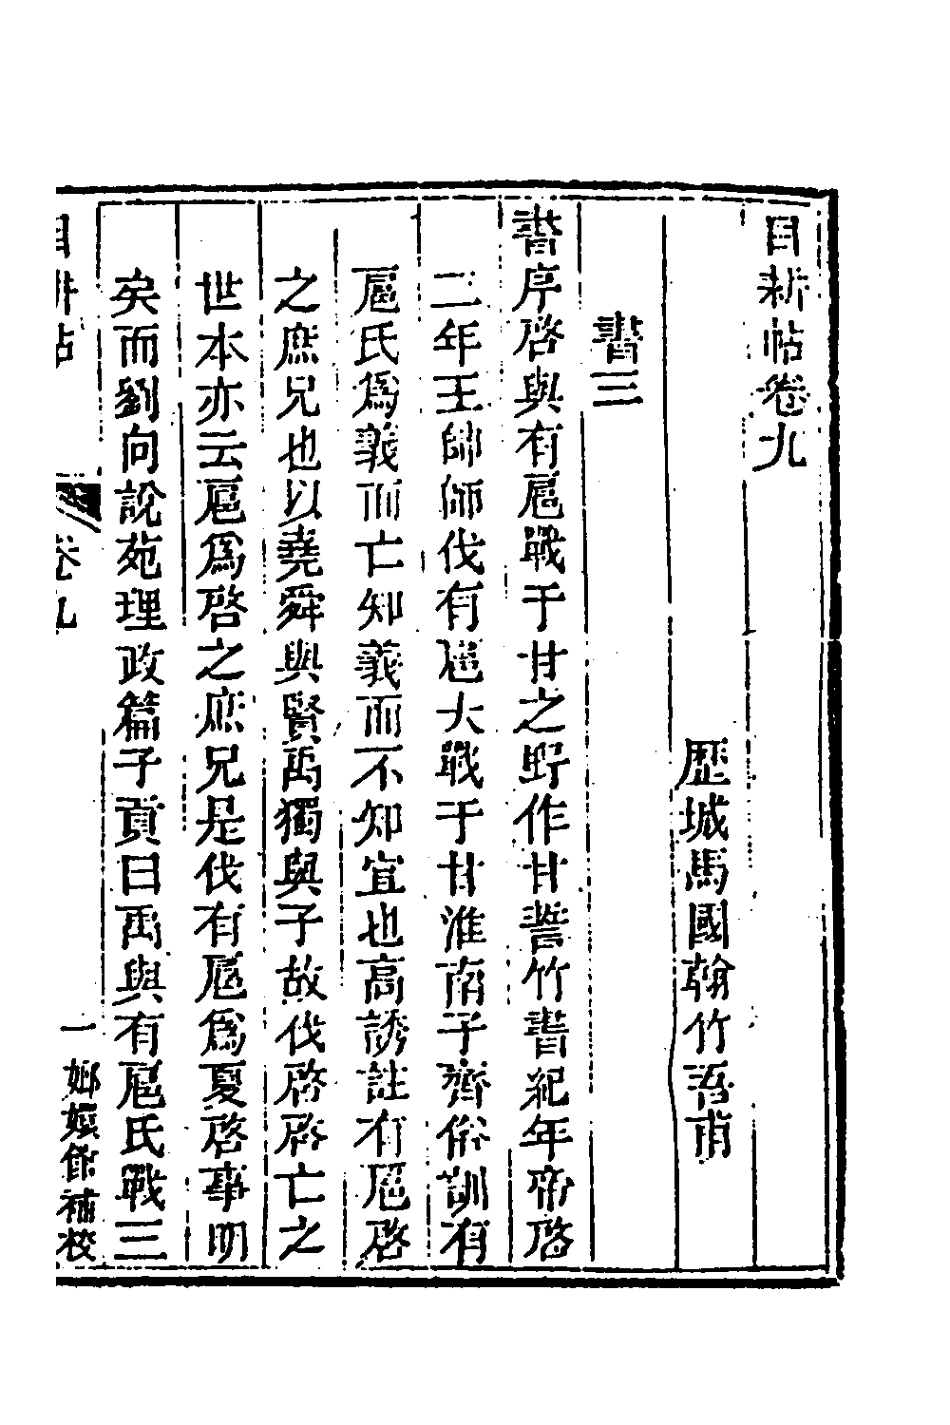 目耕帖卷九
歷城馬國翰竹吾甫
書三
書序啓與有扈戰于甘之野作甘誓竹書紀年帝啓
二年王帥師伐有扈大戰于甘淮南子齊俗訓有
扈氏爲義而亡知義而不知宜也高誘註有扈啓
之庶兄也以堯舜與賢禹獨與子故伐啓啓亡之
世本亦云扈爲啓之庶兄是伐有扈爲夏啓事明
矣而劉向說苑理政篇子貢曰禹與有扈氏戰三
目耕帖 卷九 一 嫏嬛館補校